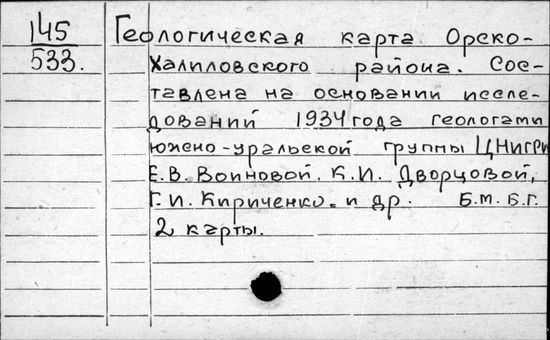 145
533.
Геологическая карта Орско-
Халиловского района. Сос-
тавлена на основании иссле-
дований 1934 года геологами
южно-уральской группы ЦНИГРИ
Е.В. Воиновой, К.И. Дворцовой,
Г.И. Кириченко и др. Б.м. Б.г.
2 карты.